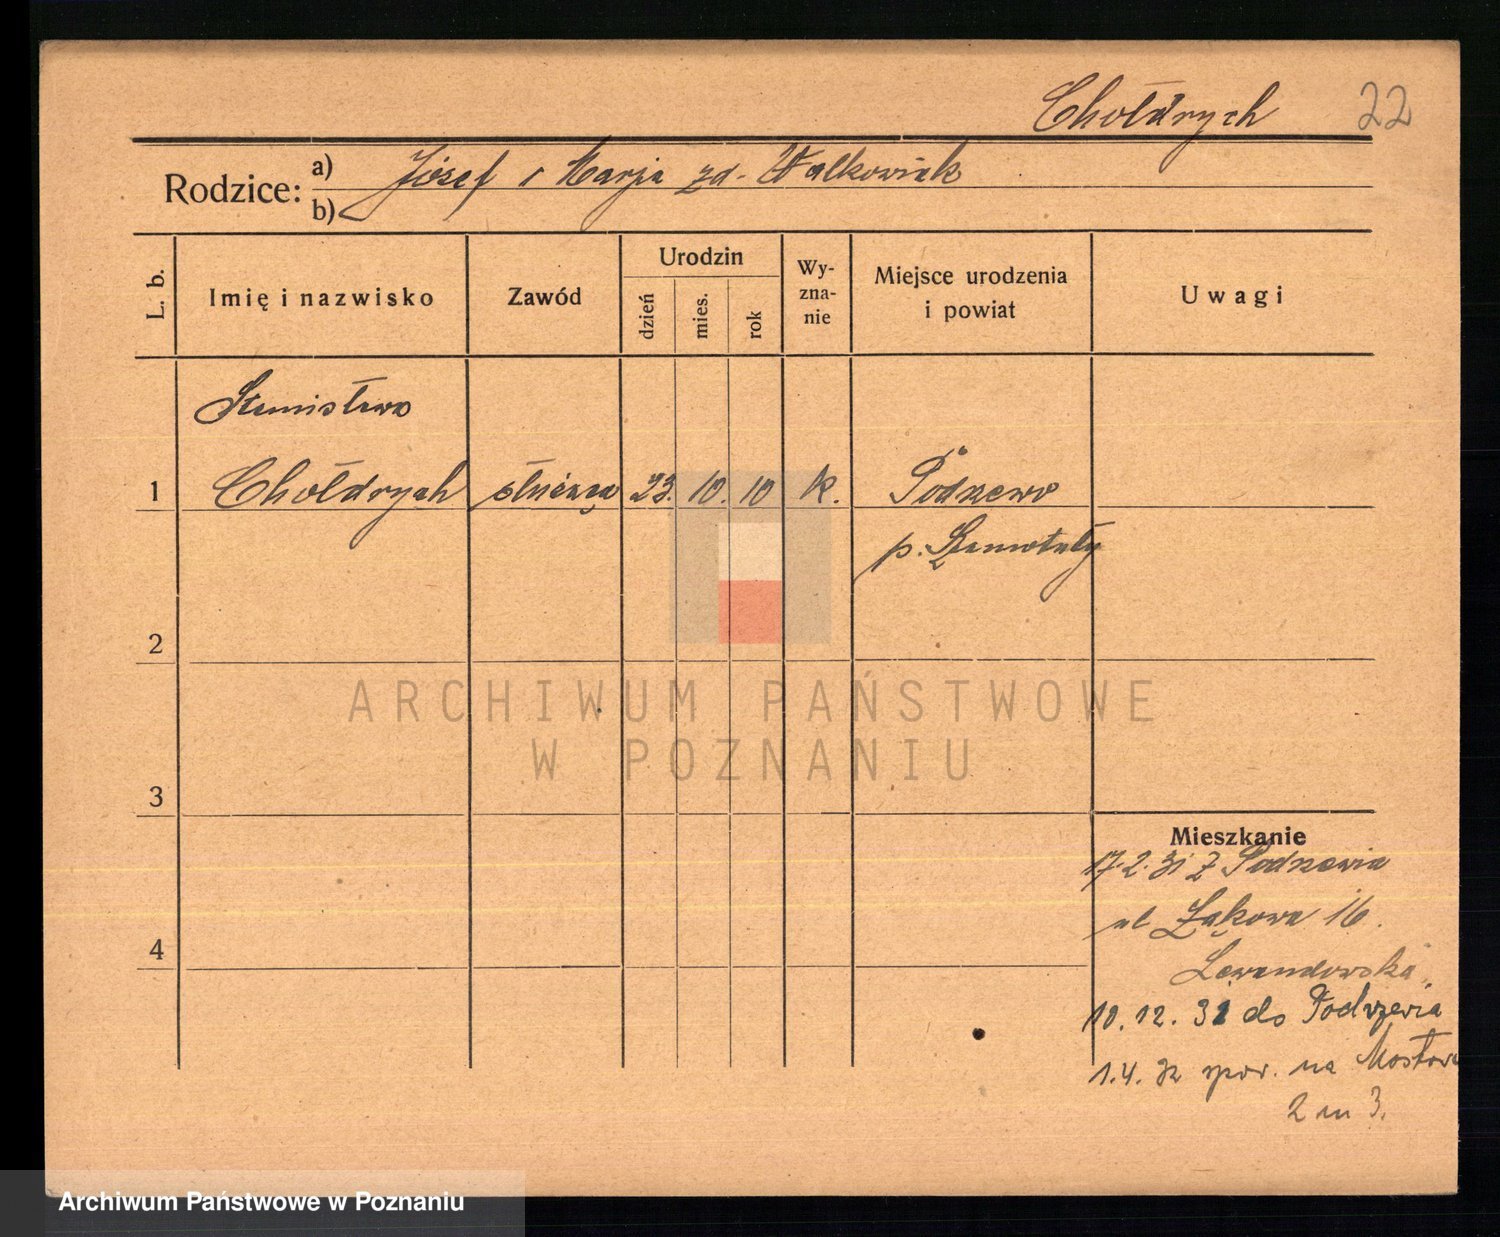 Chołdrych 22
Rodzice: a) Józef i Marja zd. Walkowiak
b)
L. b. Imię i nazwisko Zawód Urodzin dzień mies. rok Wy-zna-nie Miejsce urodzenia i powiat Uwagi
Stanisława
1 Chołdrych służąca 23. 10. 10 k. Podrzewo
p. Szamotuły
2
ARCHIWUM PAŃSTWOWE
W POZNANIU
3
Mieszkanie
17.2.31 z Podrzewia
ul Łąkowa 16.
4 Lewandowska
10.12.31 do Podrzewia
1.4.32 spow. na Mostowa
2 m 3.
Archiwum Państwowe w Poznaniu